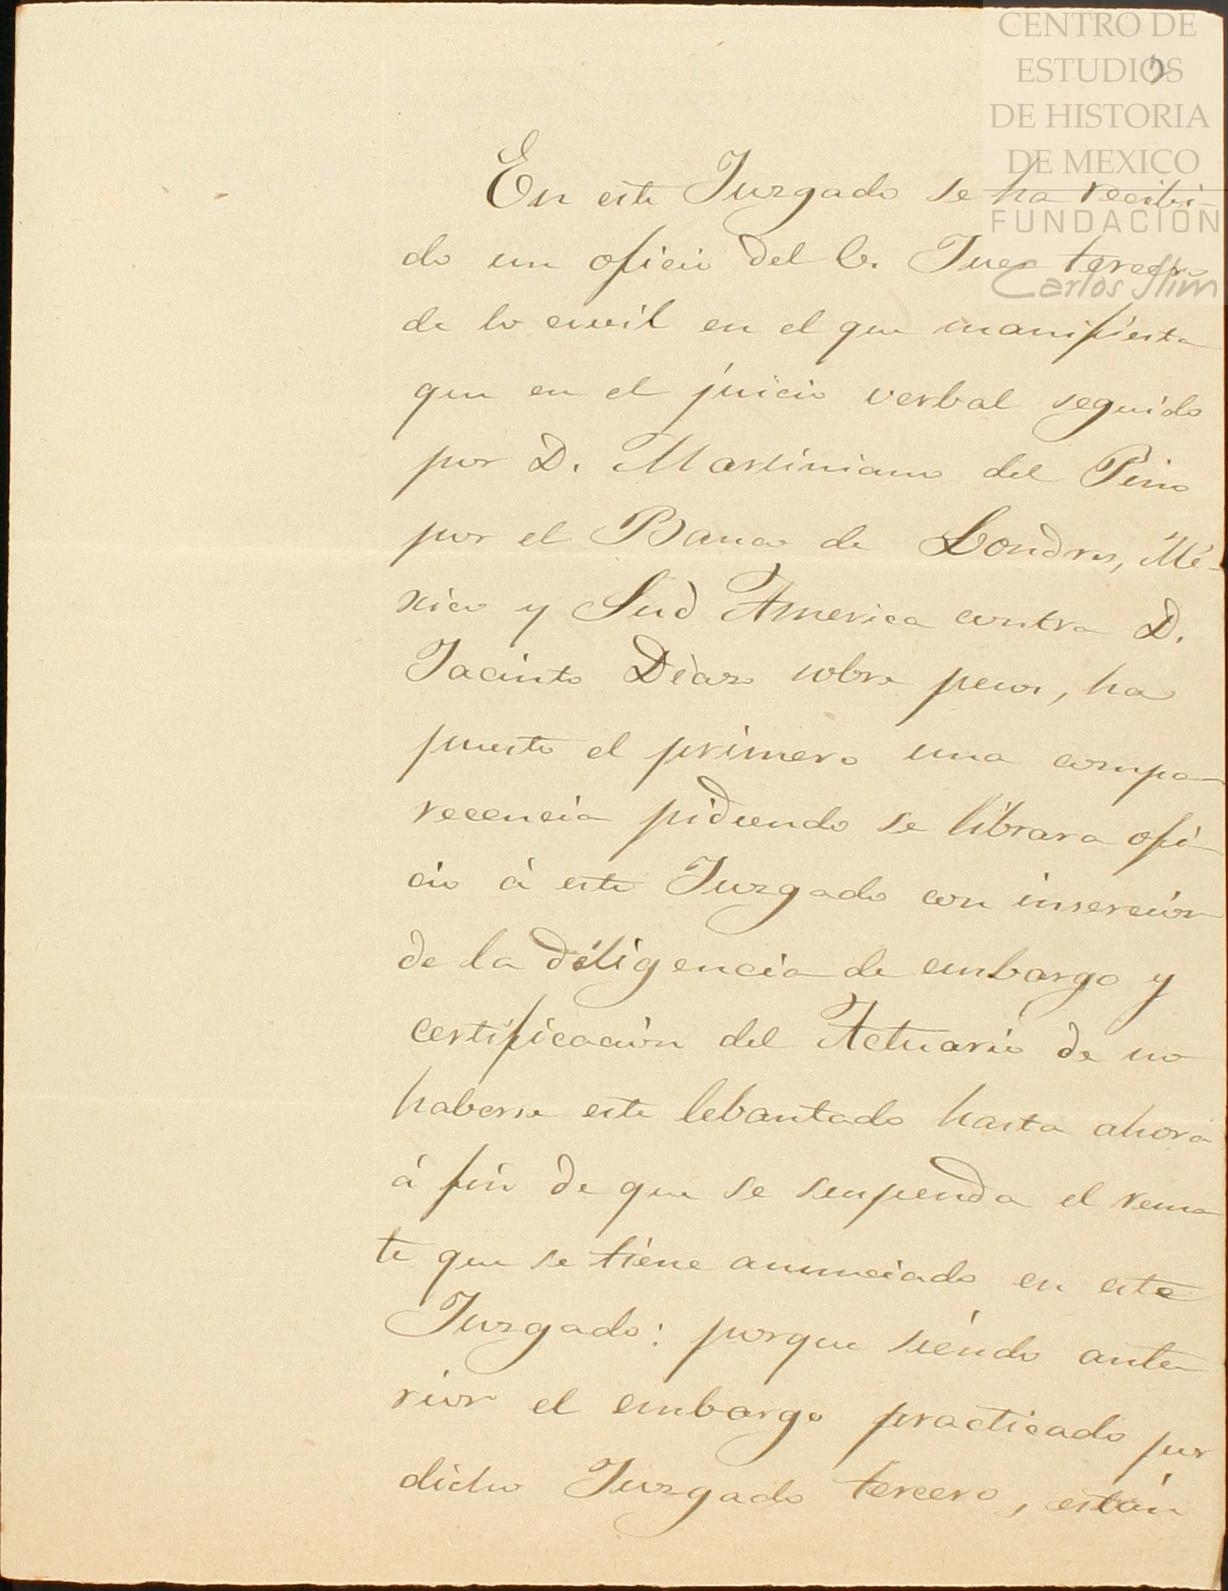 CENTRO DE
ESTUDIOS
DE HISTORIA
DE MEXICO
FUNDACIÓN
Carlos Slim
2
En este Juzgado se ha recibi-
do un oficio del C. Juez tercero
de lo civil en el que manifiesta
que en el juicio verbal seguido
por D. Martiniano del Pino
por el Banco de Londres, Mé-
xico y Sud America contra D.
Jacinto Diaz sobre pesos, ha
puesto el primero una compa-
recencia pidiendo se librara ofi-
cio á este Juzgado con insercion
de la diligencia de embargo y
certificacion del Actuario de no
haberse este lebantado hasta ahora
á fin de que se suspenda el rema
te que se tiene anunciado en este
Juzgado: porque siendo ante
rior el embargo practicado por
dicho Juzgado tercero, están